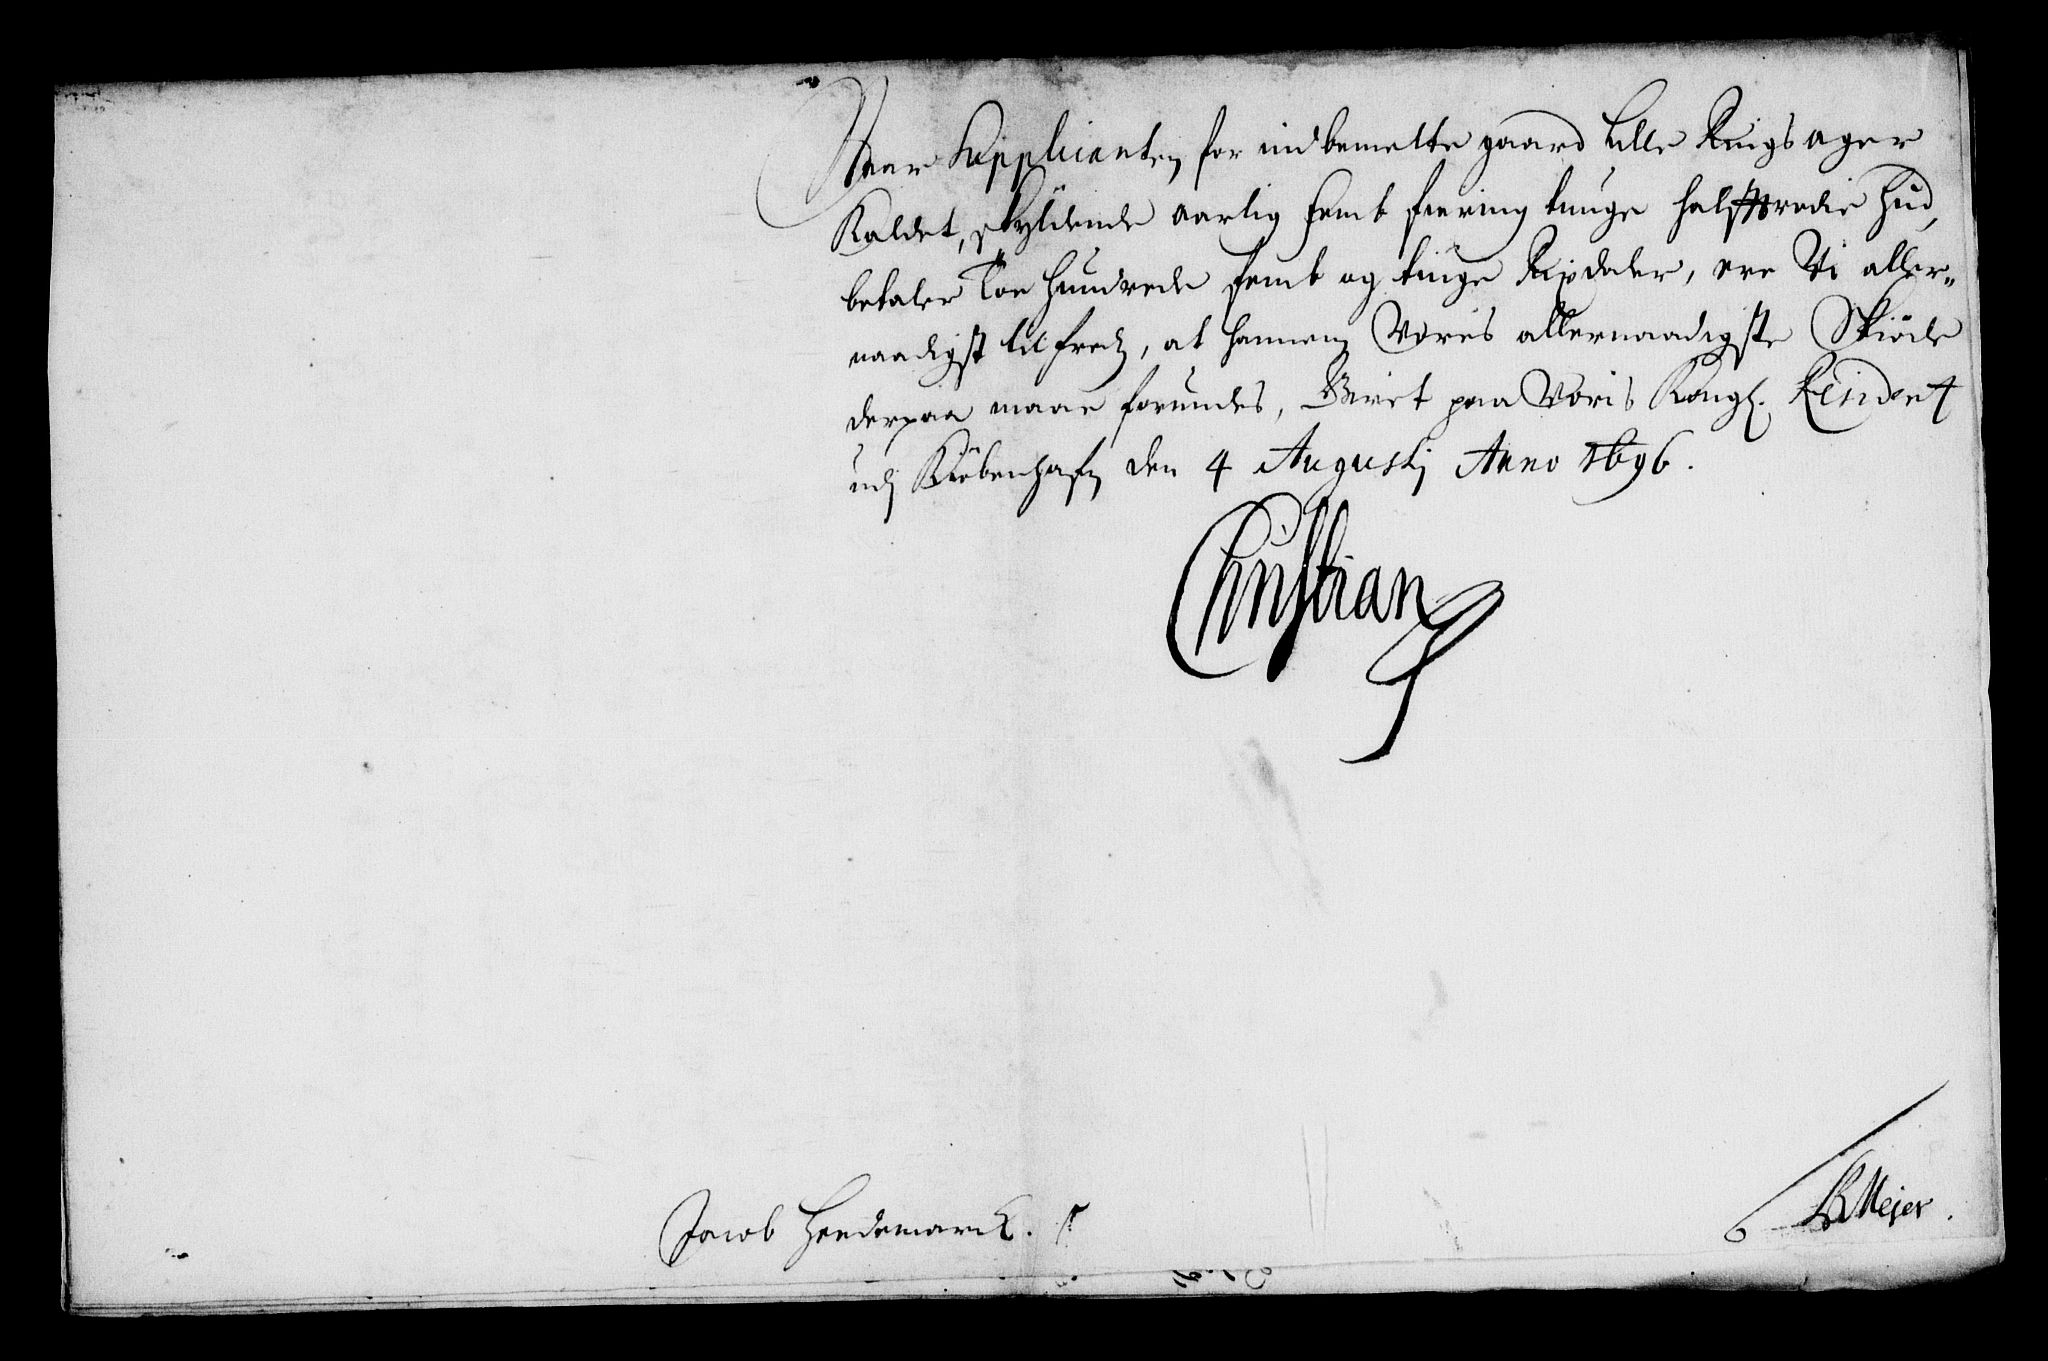 Naar Supplicanten for indbemelte gaard Lille Ringsager
Kaldet, skyldende aarlig femb fiering tunge halffredie hud,
betaler Toe hundrede femb og tiuge Rixdaler, ere Vi aller-
naadigst tilfredz, at hannem Voris allernaadigste Skiøde
derpaa maae forundes, Givet paa Voris Kongl. Residentz
udj Kiøbenhafn den 4 Augustj Anno 1696.
Christian
Meier.
Jacob Hendemarck.